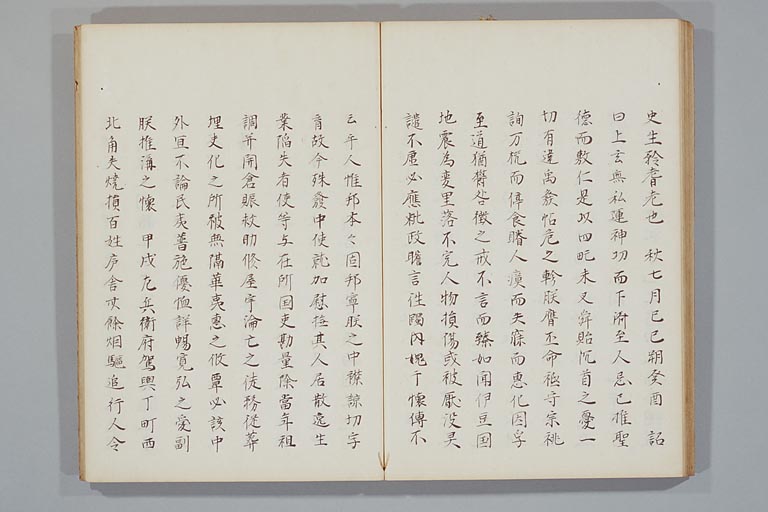 史生矜耆老也　秋七月己巳朔癸酉　詔
曰上玄無私運神功而下済至人忌己推聖
徳而敷仁是以四眂未乂弁貽沉首之憂一
切有違禹發怗危之軫朕膺丕命祗守宗祧
詢万机而倦食賭人瘼而失寐而惠化罔孚
至道猶欝咎徴之戒不言而臻如聞伊豆国
地震為変里落不完人物損傷或被厭没旲
譴不虚必應粃政瞻言往躅内媿于懐傳不
云乎人惟邦本々固邦寧朕之中襟諒切字
育故今殊發中使就加慰撫其人居散逸生
業陥失者使等与在所国吏勘量除當年租
調并開倉賑救助修屋宇淪亡之徒務従葬
埋夫化之所被無隔華夷惠之攸覃必該中
外宜不論民夷普施優恤詳暢寛弘之愛副
朕推溝之懐　甲戌左兵衛府駕輿丁町西
北角失燒損百姓庐舎廿餘烟驅追行人令